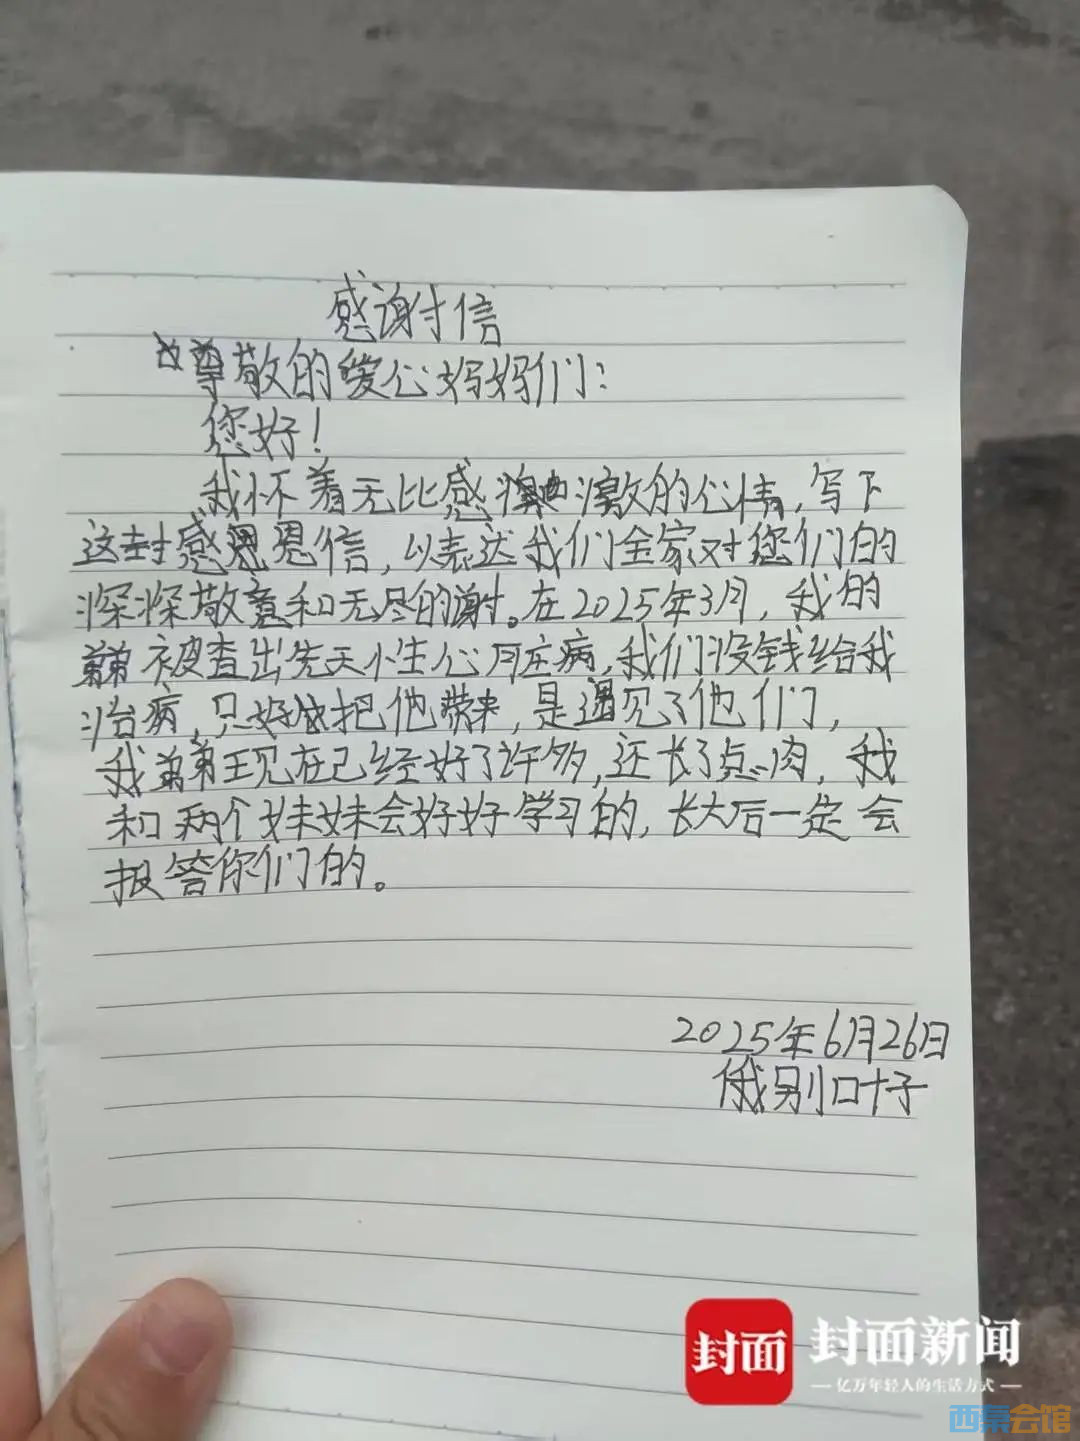 感谢信
尊敬的爱心妈妈们：
您好！
我怀着无比感激的心情，写下
这封感恩信，以表达我们全家对您们的
深深敬意和无尽的谢。在2025年3月，我的
弟弟被查出先天性心脏病，我们没钱给我
治病，只好把他带来，是遇见了他们，
我弟弟现在已经好了许多，还长了点肉，我
和两个妹妹会好好学习的，长大后一定会
报答你们的。
2025年6月26日
俄别叶子
封面
封面新闻
亿万年轻人的生活方式
西秦会馆